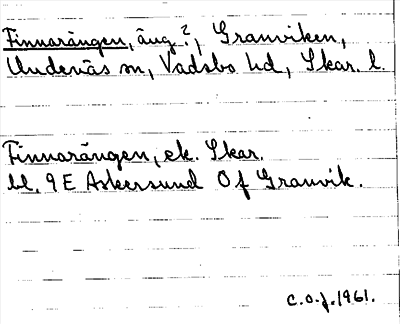 Finnarängen, äng?, Granviken,
Undenäs sn, Vadsbo hd, Skar. l.
Finnarängen, ek. Skar.
bl. 9 E Askersund 0 f Granvik.
C.O.J. 1961.